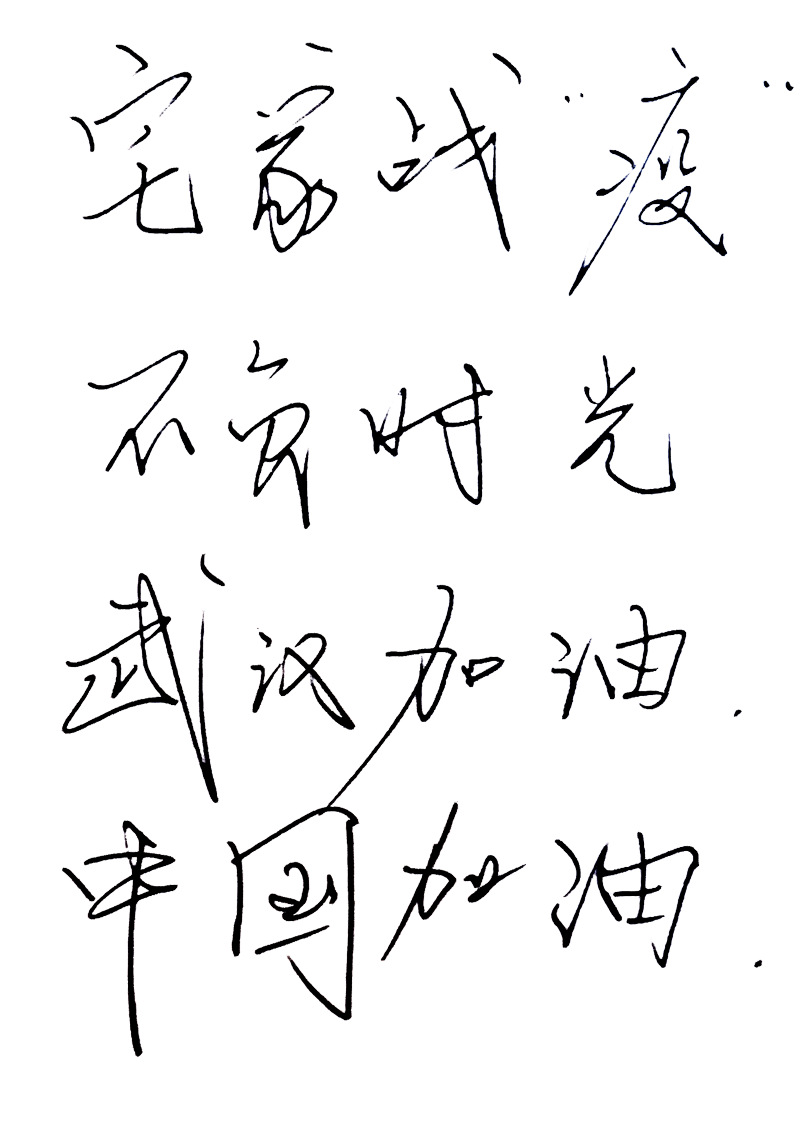 宅家战“疫”
不负时光
武汉加油.
中国加油.